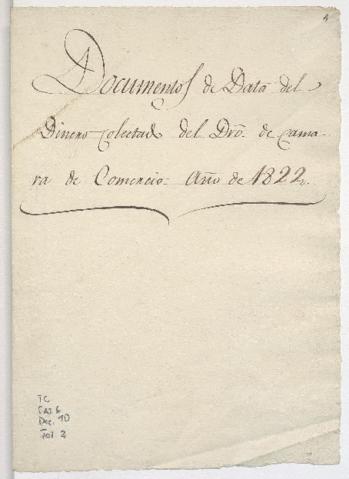 Documentos de Data del
Dinero colectado del Dro. de Cama-
ra de Comercio. Año de 1822.
TC
CAJ 6
Doc. 10
Fol 2